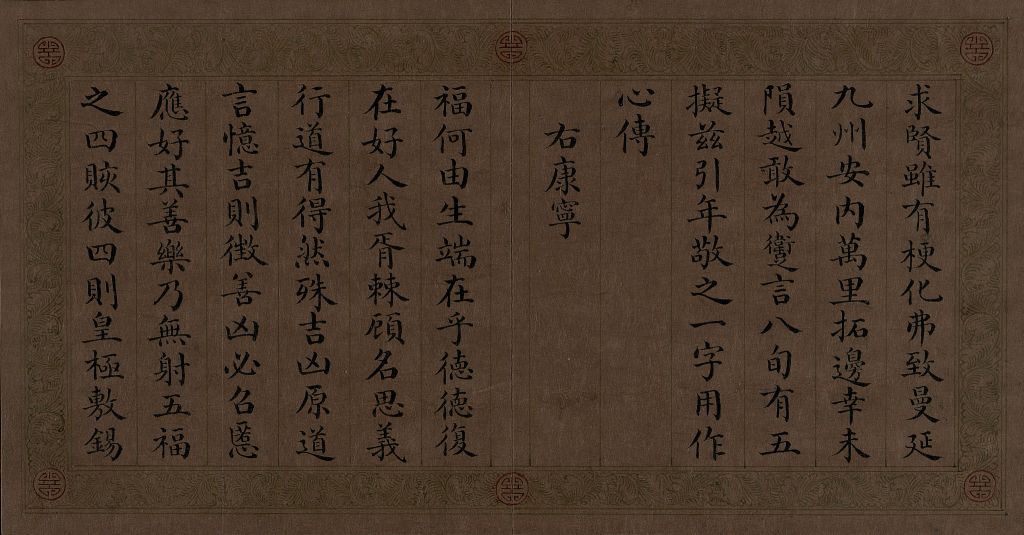 求賢雖有梗化弗致曼延
九州安內萬里拓邊幸未
隕越敢為躗言八旬有五
擬茲引年敬之一字用作
心傳
右康寧
福何由生端在乎德德復
在好人我胥棘顧名思義
行道有得然殊吉凶原道
言憶吉則徵善凶必名慝
應好其善樂乃無射五福
之四賅彼四則皇極敷錫